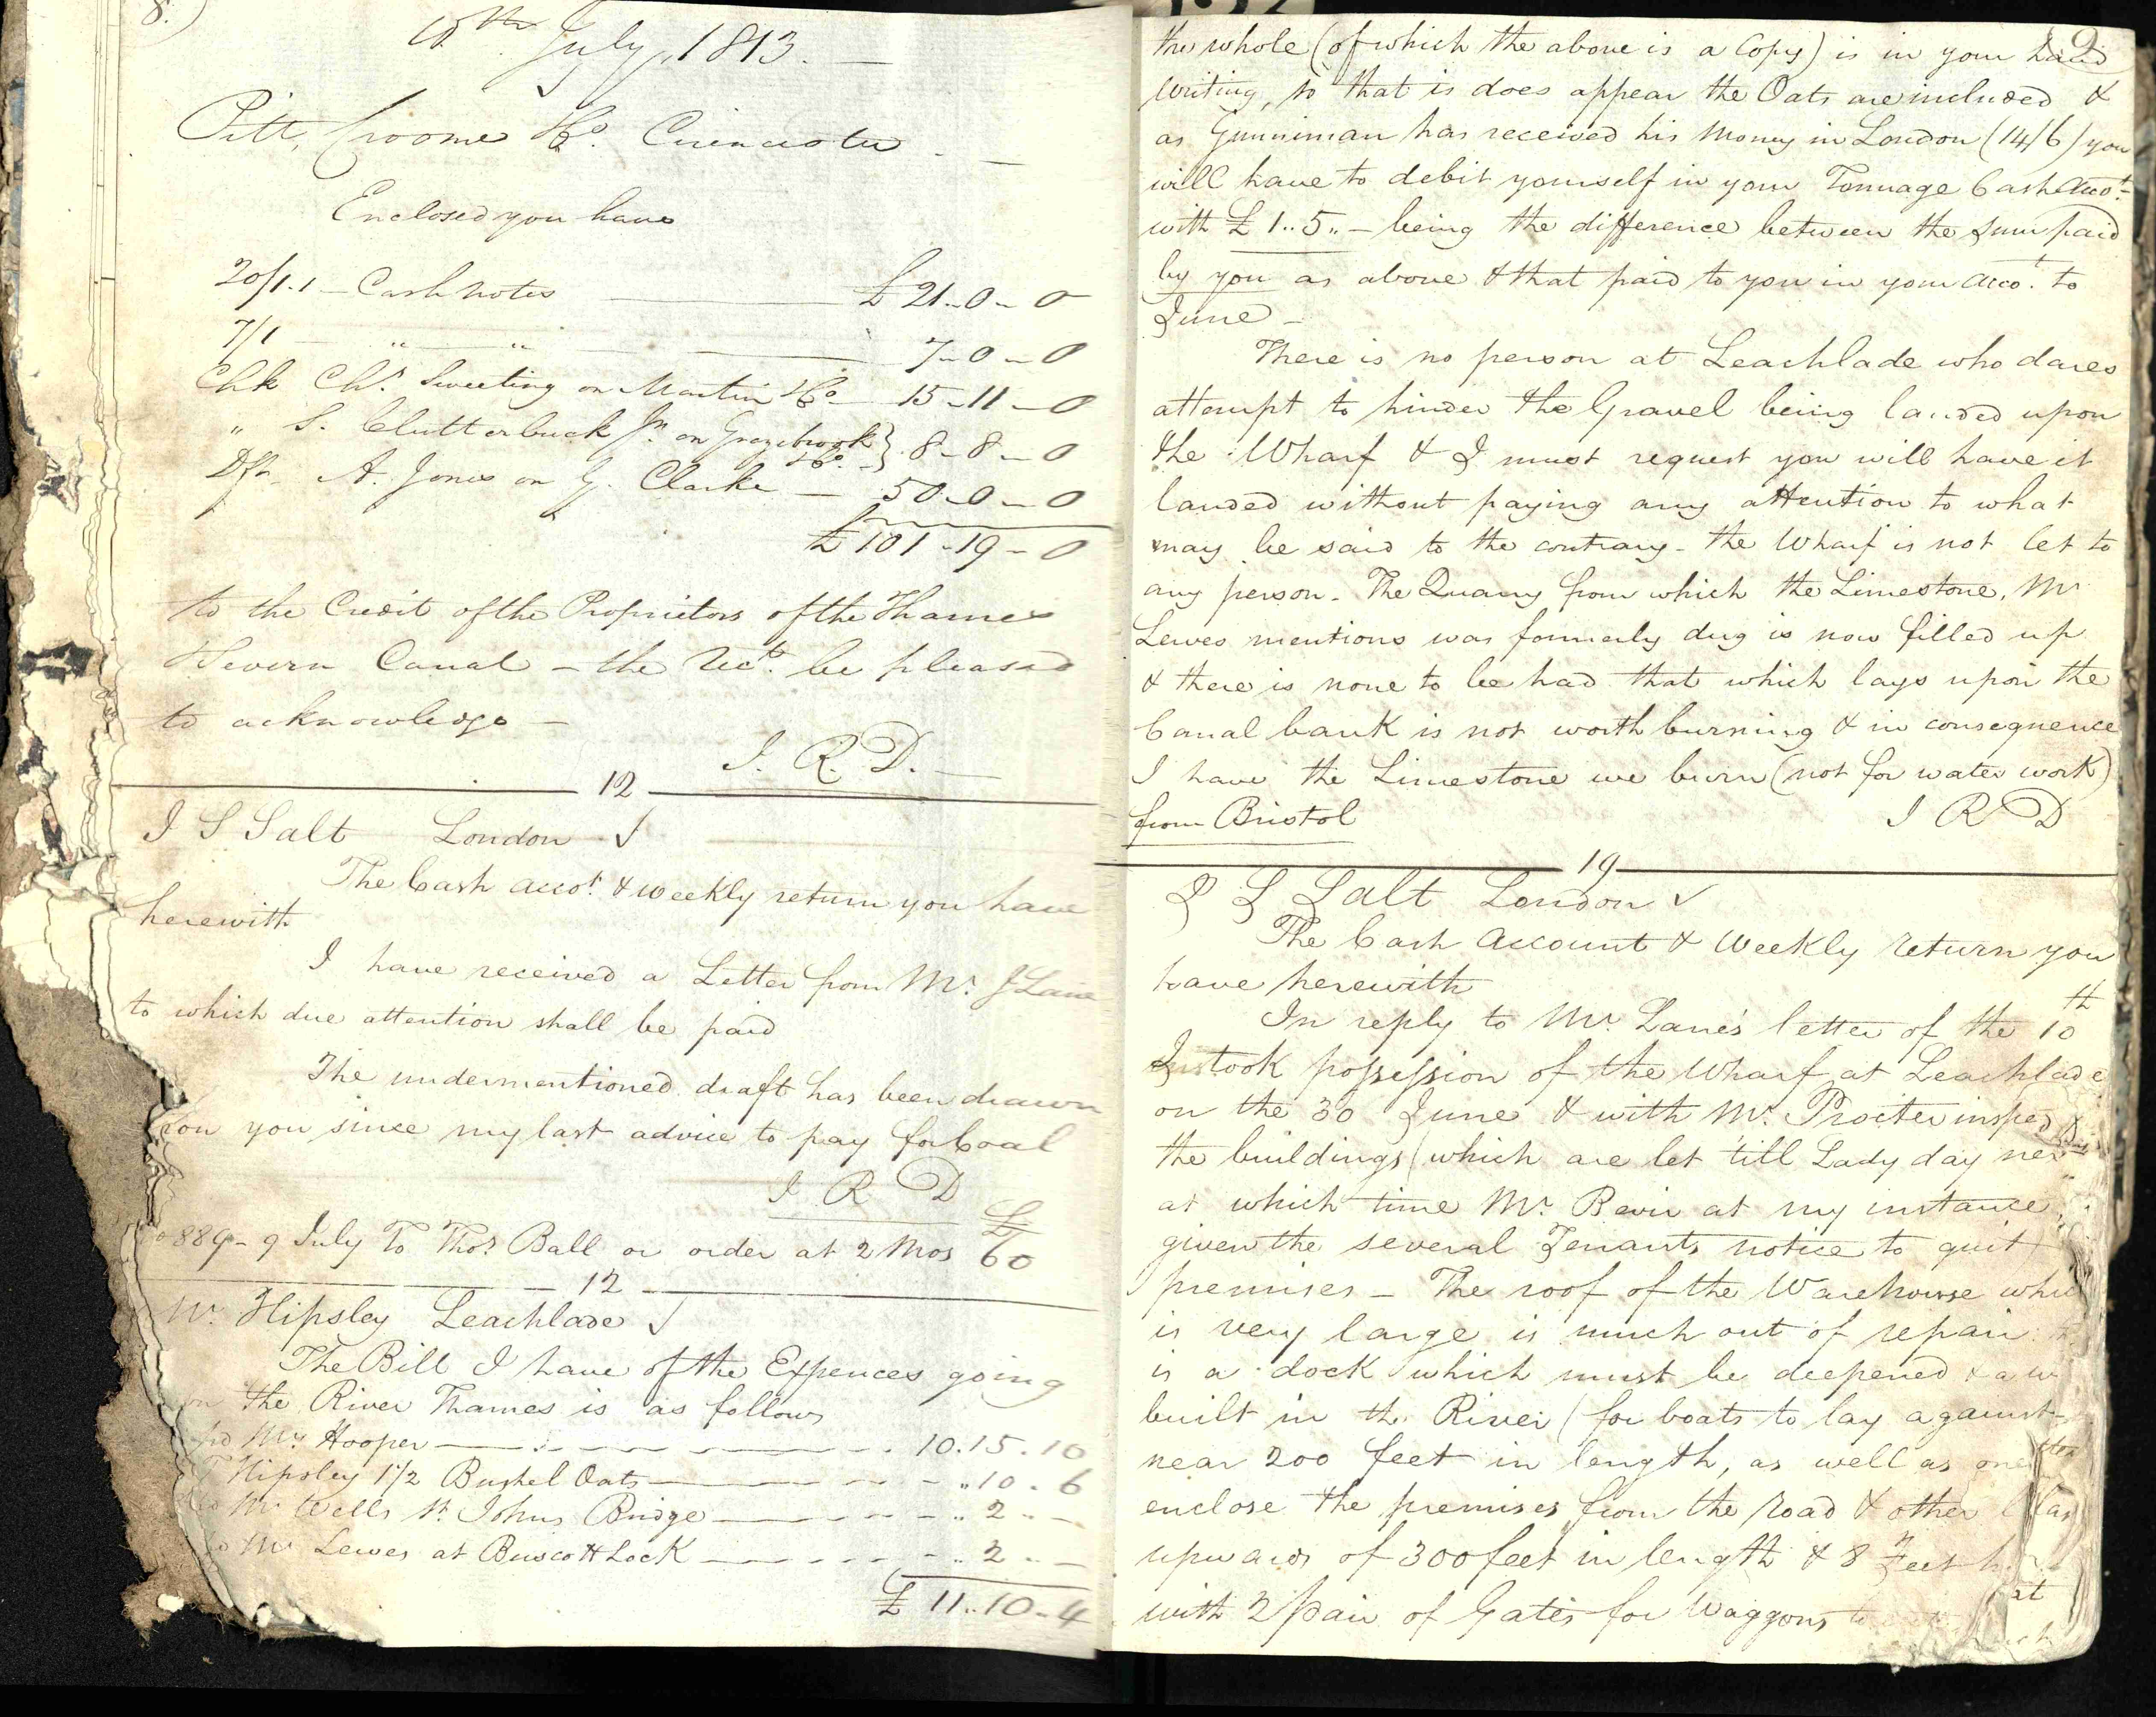 8.)
July, 1813. —
Pitt, Croome & Co. Cirencester
Enclosed you have
20/1.1 — Cash Notes — £ 21 - 0 - 0
7/1 — " " — 7 - 0 - 0
Chk Chs. Sweeting on Martin & Co — 15 - 11 - 0
" S. Clutterbuck Jn. on Grazebrook & Co. } 8 - 8 - 0
Dft. A. Jones on G. Clarke — 50 - 0 - 0
£ 101 - 19 - 0
to the Credit of the Proprietors of the Thames
& Severn Canal — the rect. be pleased
to acknowledge —
I. R. D. —
12
I S Salt London ✓
The Cash Accot. & weekly return you have
herewith
I have received a Letter from Mr. J Lane
to which due attention shall be paid
The undermentioned draft has been drawn
on you since my last advice to pay for Coal
I R D
£
889 - 9 July To Thos. Ball or order at 2 Mos 60
12
W. Hipsley Leachlade ✓
The Bill I have of the Expences going
on the River Thames is as follows
Mr Hooper — 10 . 15 . 10
Hipsley 1 1/2 Bushel Oats — " 10 . 6
Mr Wells St. Johns Bridge — .. 2 .. —
Mr Lewes at Buscott Lock — .. 2 .. —
£ 11 .. 10 .. 4
9
the whole (of which the above is a Copy) is in your hand
writing, so that is does appear the Oats are included &
as Gunniman has received his Money in London (14/6) you
will have to debit yourself in your Tonnage Cash Accot.
with £ 1 .. 5 .. — being the difference between the Sum paid
by you as above & that paid to you in your Acco.t to
June —
There is no person at Leachlade who dares
attempt to hinder the Gravel being landed upon
the Wharf & I must request you will have it
landed without paying any attention to what
may be said to the contrary - the Wharf is not let to
any person - The Quarry from which the Limestone, Mr
Lewes mentions was formerly dug is now filled up
& there is none to be had that which lays upon the
Canal bank is not worth burning & in consequence
I have the Limestone we burn (not for water work)
from Bristol I R D
19
I S Salt London ✓
The Cash Account & Weekly return you
have herewith
In reply to Mr. Lane's letter of the 10th
I took possession of the Wharf at Leachlade
on the 30 June & with Mr. Procter
the buildings (which are let 'till Lady day
at which time Mr. Bevir at my instance
given the several Tenants notice to quit
premises — The roof of the Warehouse
is very large is much out of repair
is a dock which must be deepened & a
built in the River (for boats to lay against
near 200 feet in length, as well as one
enclose the premises from the road & other
upwards of 300 feet in length & 8 Feet
with 2 pair of Gates for Waggons